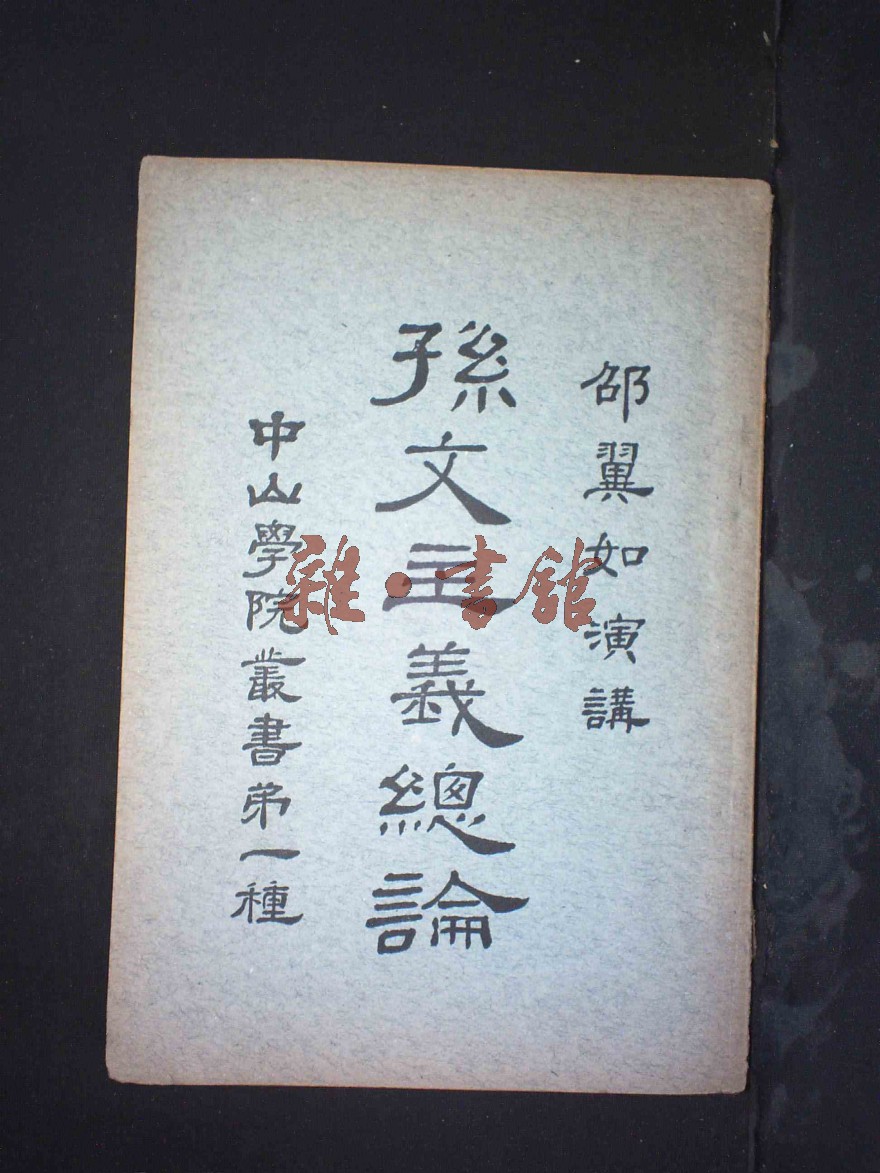 邵翼如演講
孫文主義總論
中山學院叢書弟一種
雜·書館